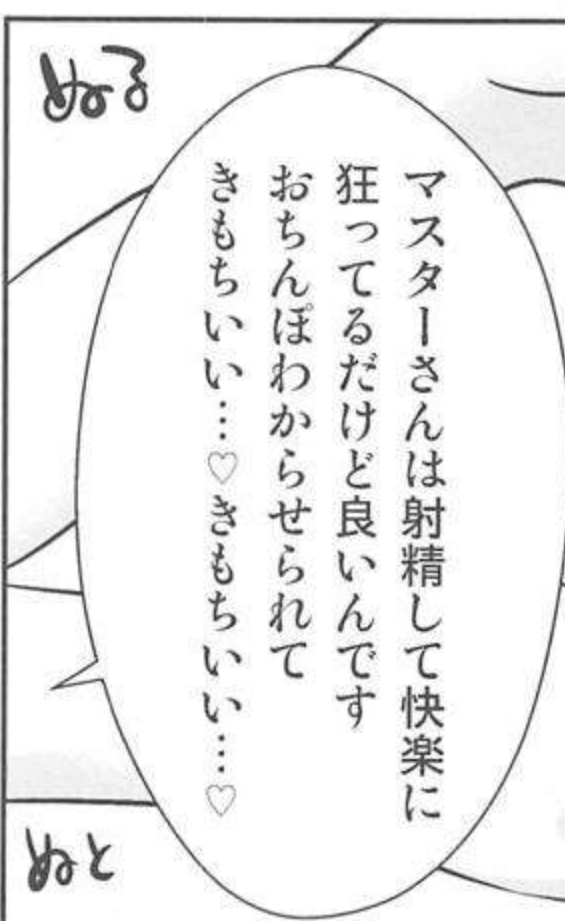 ぬる
マスターさんは射精して快楽に
狂ってるだけど良いんです
おちんぽわからせられて
きもちいい…♡きもちいい…♡
ぬと